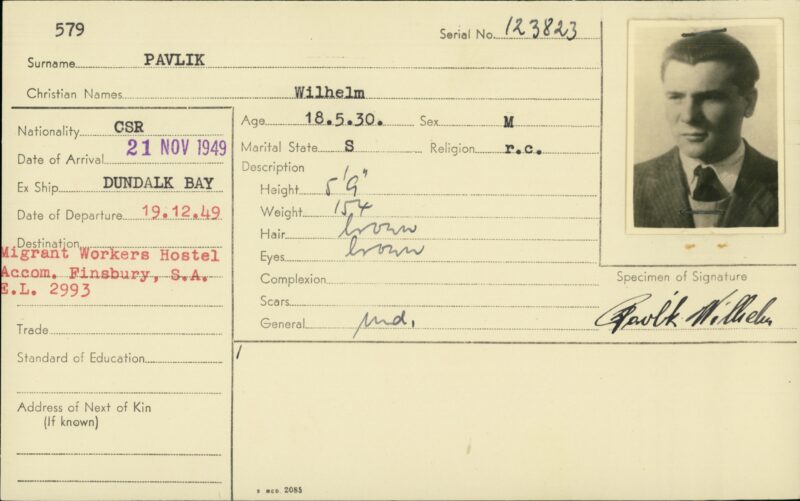 579
Serial No. 123823
Surname PAVLIK
Christian Names Wilhelm
Nationality CSR
Date of Arrival 21 NOV 1949
Ex Ship DUNDALK BAY
Date of Departure 19.12.49
Destination
Migrant Workers Hostel
Accom. Finsbury, S.A.
E.L. 2993
Trade
Standard of Education
Address of Next of Kin
(If known)
Age 18.5.30. Sex M
Marital State S Religion r.c.
Description
Height 5'9"
Weight 154
Hair brown
Eyes brown
Complexion
Scars
General Med.
Specimen of Signature
Pavlik Wilhelm
2085